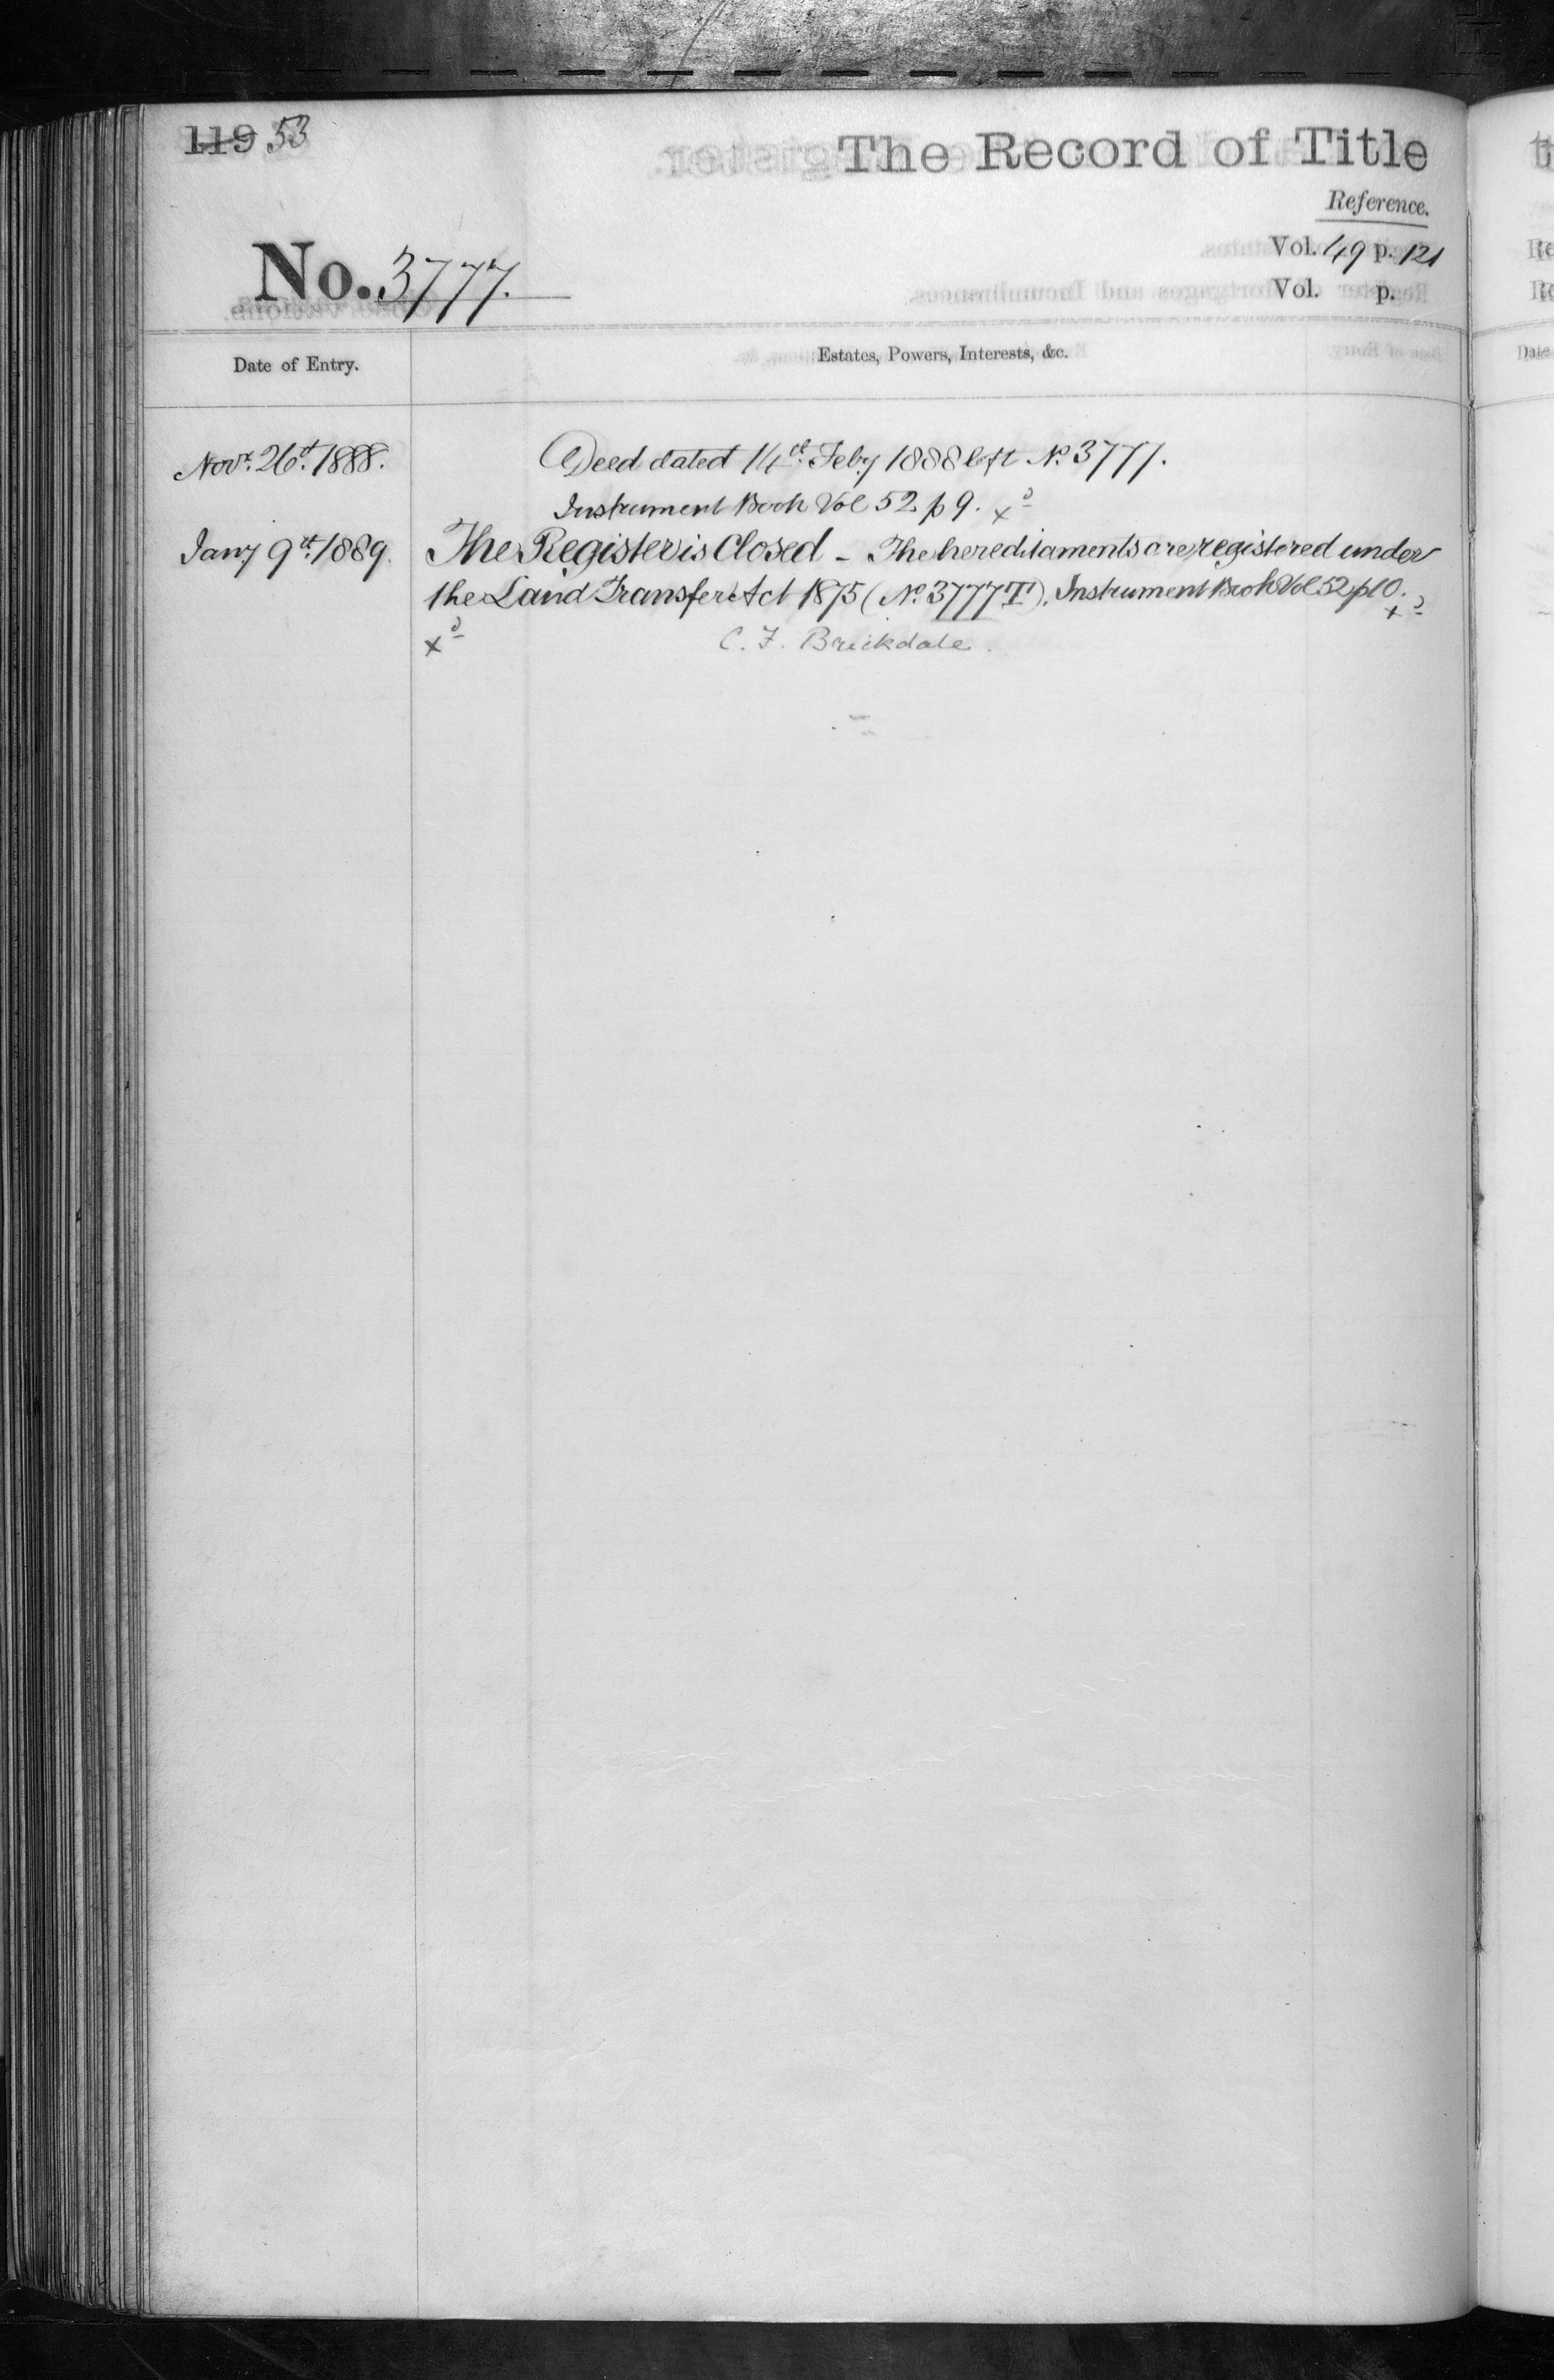 119 53
The Record of Title
Reference.
No. 3777.
Vol. 49 p. 121
Vol. p.
Date of Entry.
Estates, Powers, Interests, &c.
Novr. 26th. 1888.
Deed dated 14th Feby 1888 left No. 3777.
Instrument Book Vol 52 p 9. xd
Jany 9th. 1889.
The Register is Closed - The hereditaments are registered under
the Land Transfer Act 1875 (No. 3777T). Instrument Book Vol 52 p 10. xd
xd
C. F. Brickdale.